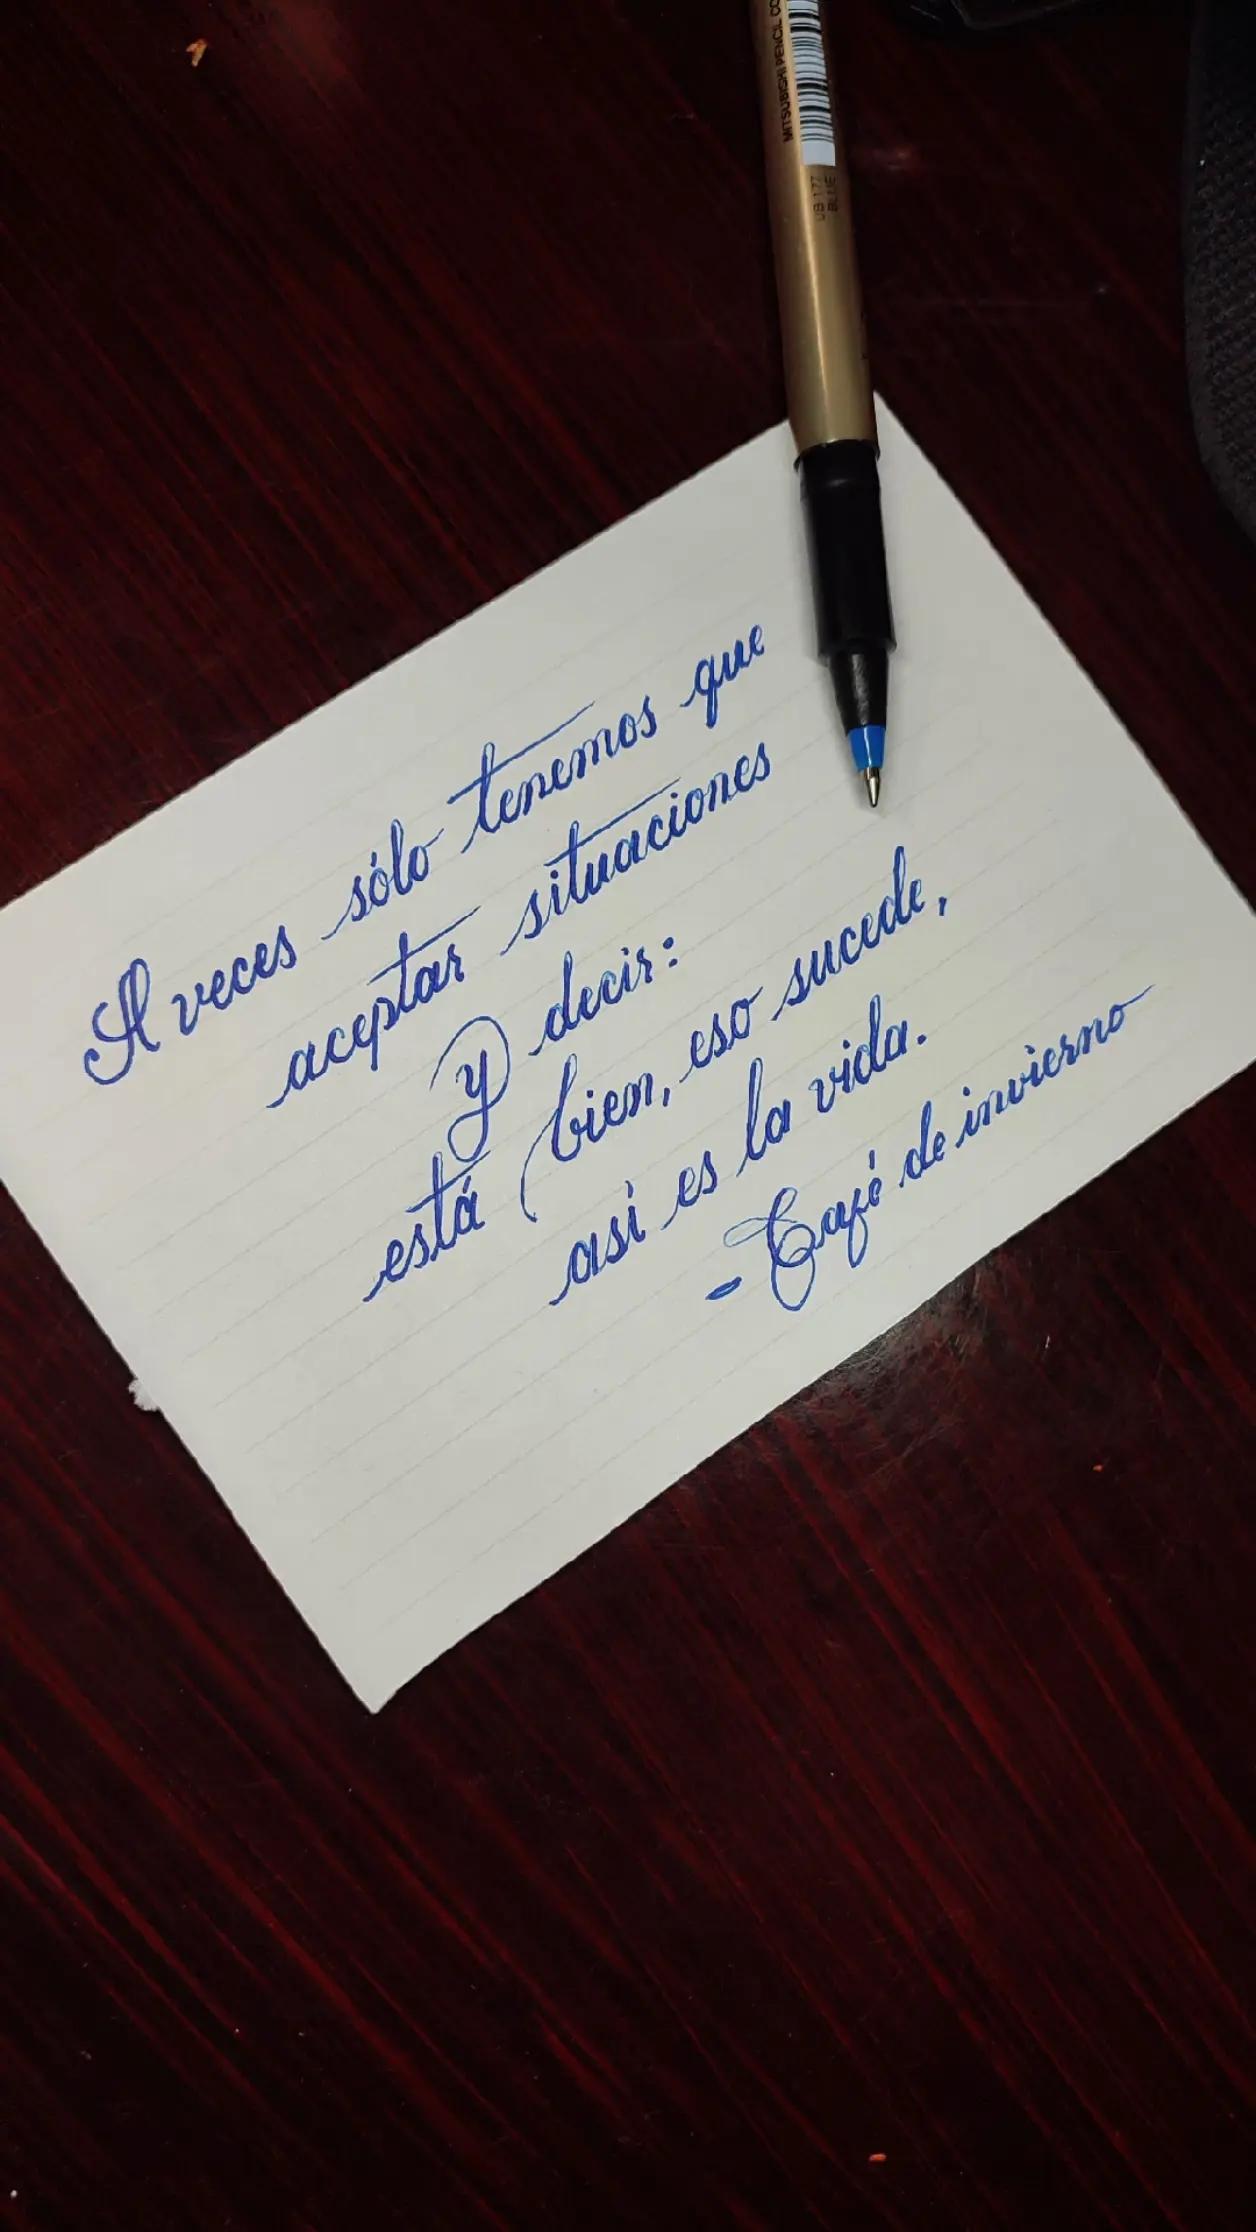 MITSUBISHI PENCIL CO
UB 177
BLUE
A veces sólo tenemos que
aceptar situaciones
y decir:
está bien, eso sucede,
así es la vida.
- Café de invierno